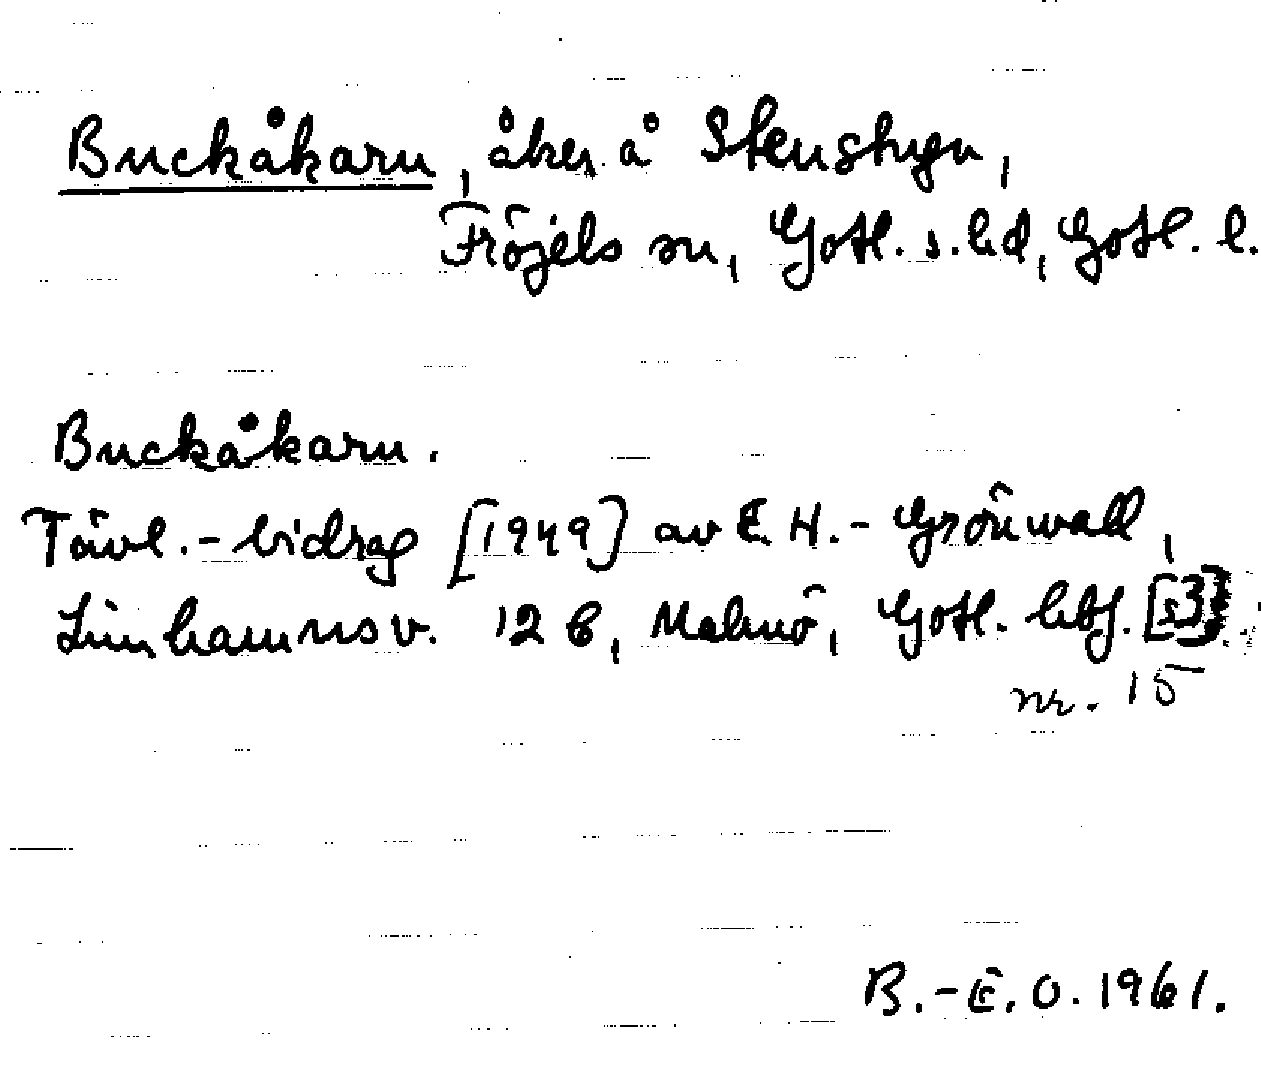 Buckåkarn, åker å Stenstugu,
Fröjels sn, Gotl. s. hd, Gotl. l.
Buckåkarn.
Tävl.-bidrag [1949] av E. H.-Grönwall,
Limhamnsv. 12 B, Malmö, Gotl. hbf.
nr. 15
B.-E. O. 1961.